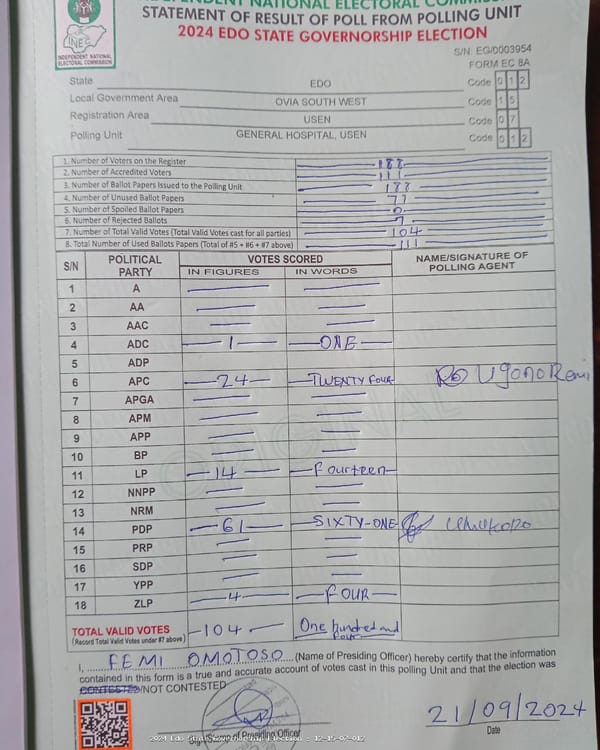 INDEPENDENT NATIONAL ELECTORAL COMMISSION
STATEMENT OF RESULT OF POLL FROM POLLING UNIT
2024 EDO STATE GOVERNORSHIP ELECTION
INEC
INDEPENDENT NATIONAL
ELECTORAL COMMISSION
S/N: EG/0003954
FORM EC 8A
State EDO Code 0 1 2
Local Government Area OVIA SOUTH WEST Code 1 5
Registration Area USEN Code 0 7
Polling Unit GENERAL HOSPITAL, USEN Code 0 1 2
1. Number of Voters on the Register 188
2. Number of Accredited Voters 111
3. Number of Ballot Papers Issued to the Polling Unit 188
4. Number of Unused Ballot Papers 77
5. Number of Spoiled Ballot Papers 0
6. Number of Rejected Ballots 7
7. Number of Total Valid Votes (Total Valid Votes cast for all parties) 104
8. Total Number of Used Ballots Papers (Total of #5 + #6 + #7 above) 111
S/N POLITICAL PARTY VOTES SCORED NAME/SIGNATURE OF POLLING AGENT
IN FIGURES IN WORDS
1 A
2 AA
3 AAC
4 ADC 1 ONE
5 ADP
6 APC 24 TWENTY FOUR
7 APGA
8 APM
9 APP
10 BP
11 LP 14 Fourteen
12 NNPP
13 NRM
14 PDP 61 SIXTY-ONE
15 PRP
16 SDP
17 YPP
18 ZLP 4 FOUR
TOTAL VALID VOTES 104 One hundred and four
(Record Total Valid Votes under #7 above)
I, FEMI OMOTOSO (Name of Presiding Officer) hereby certify that the information
contained in this form is a true and accurate account of votes cast in this polling Unit and that the election was
CONTESTED/NOT CONTESTED
21/09/2024
Signature of Presiding Officer Date
2024 Edo State Governorship Election - 12-15-07-012
ORIGINAL